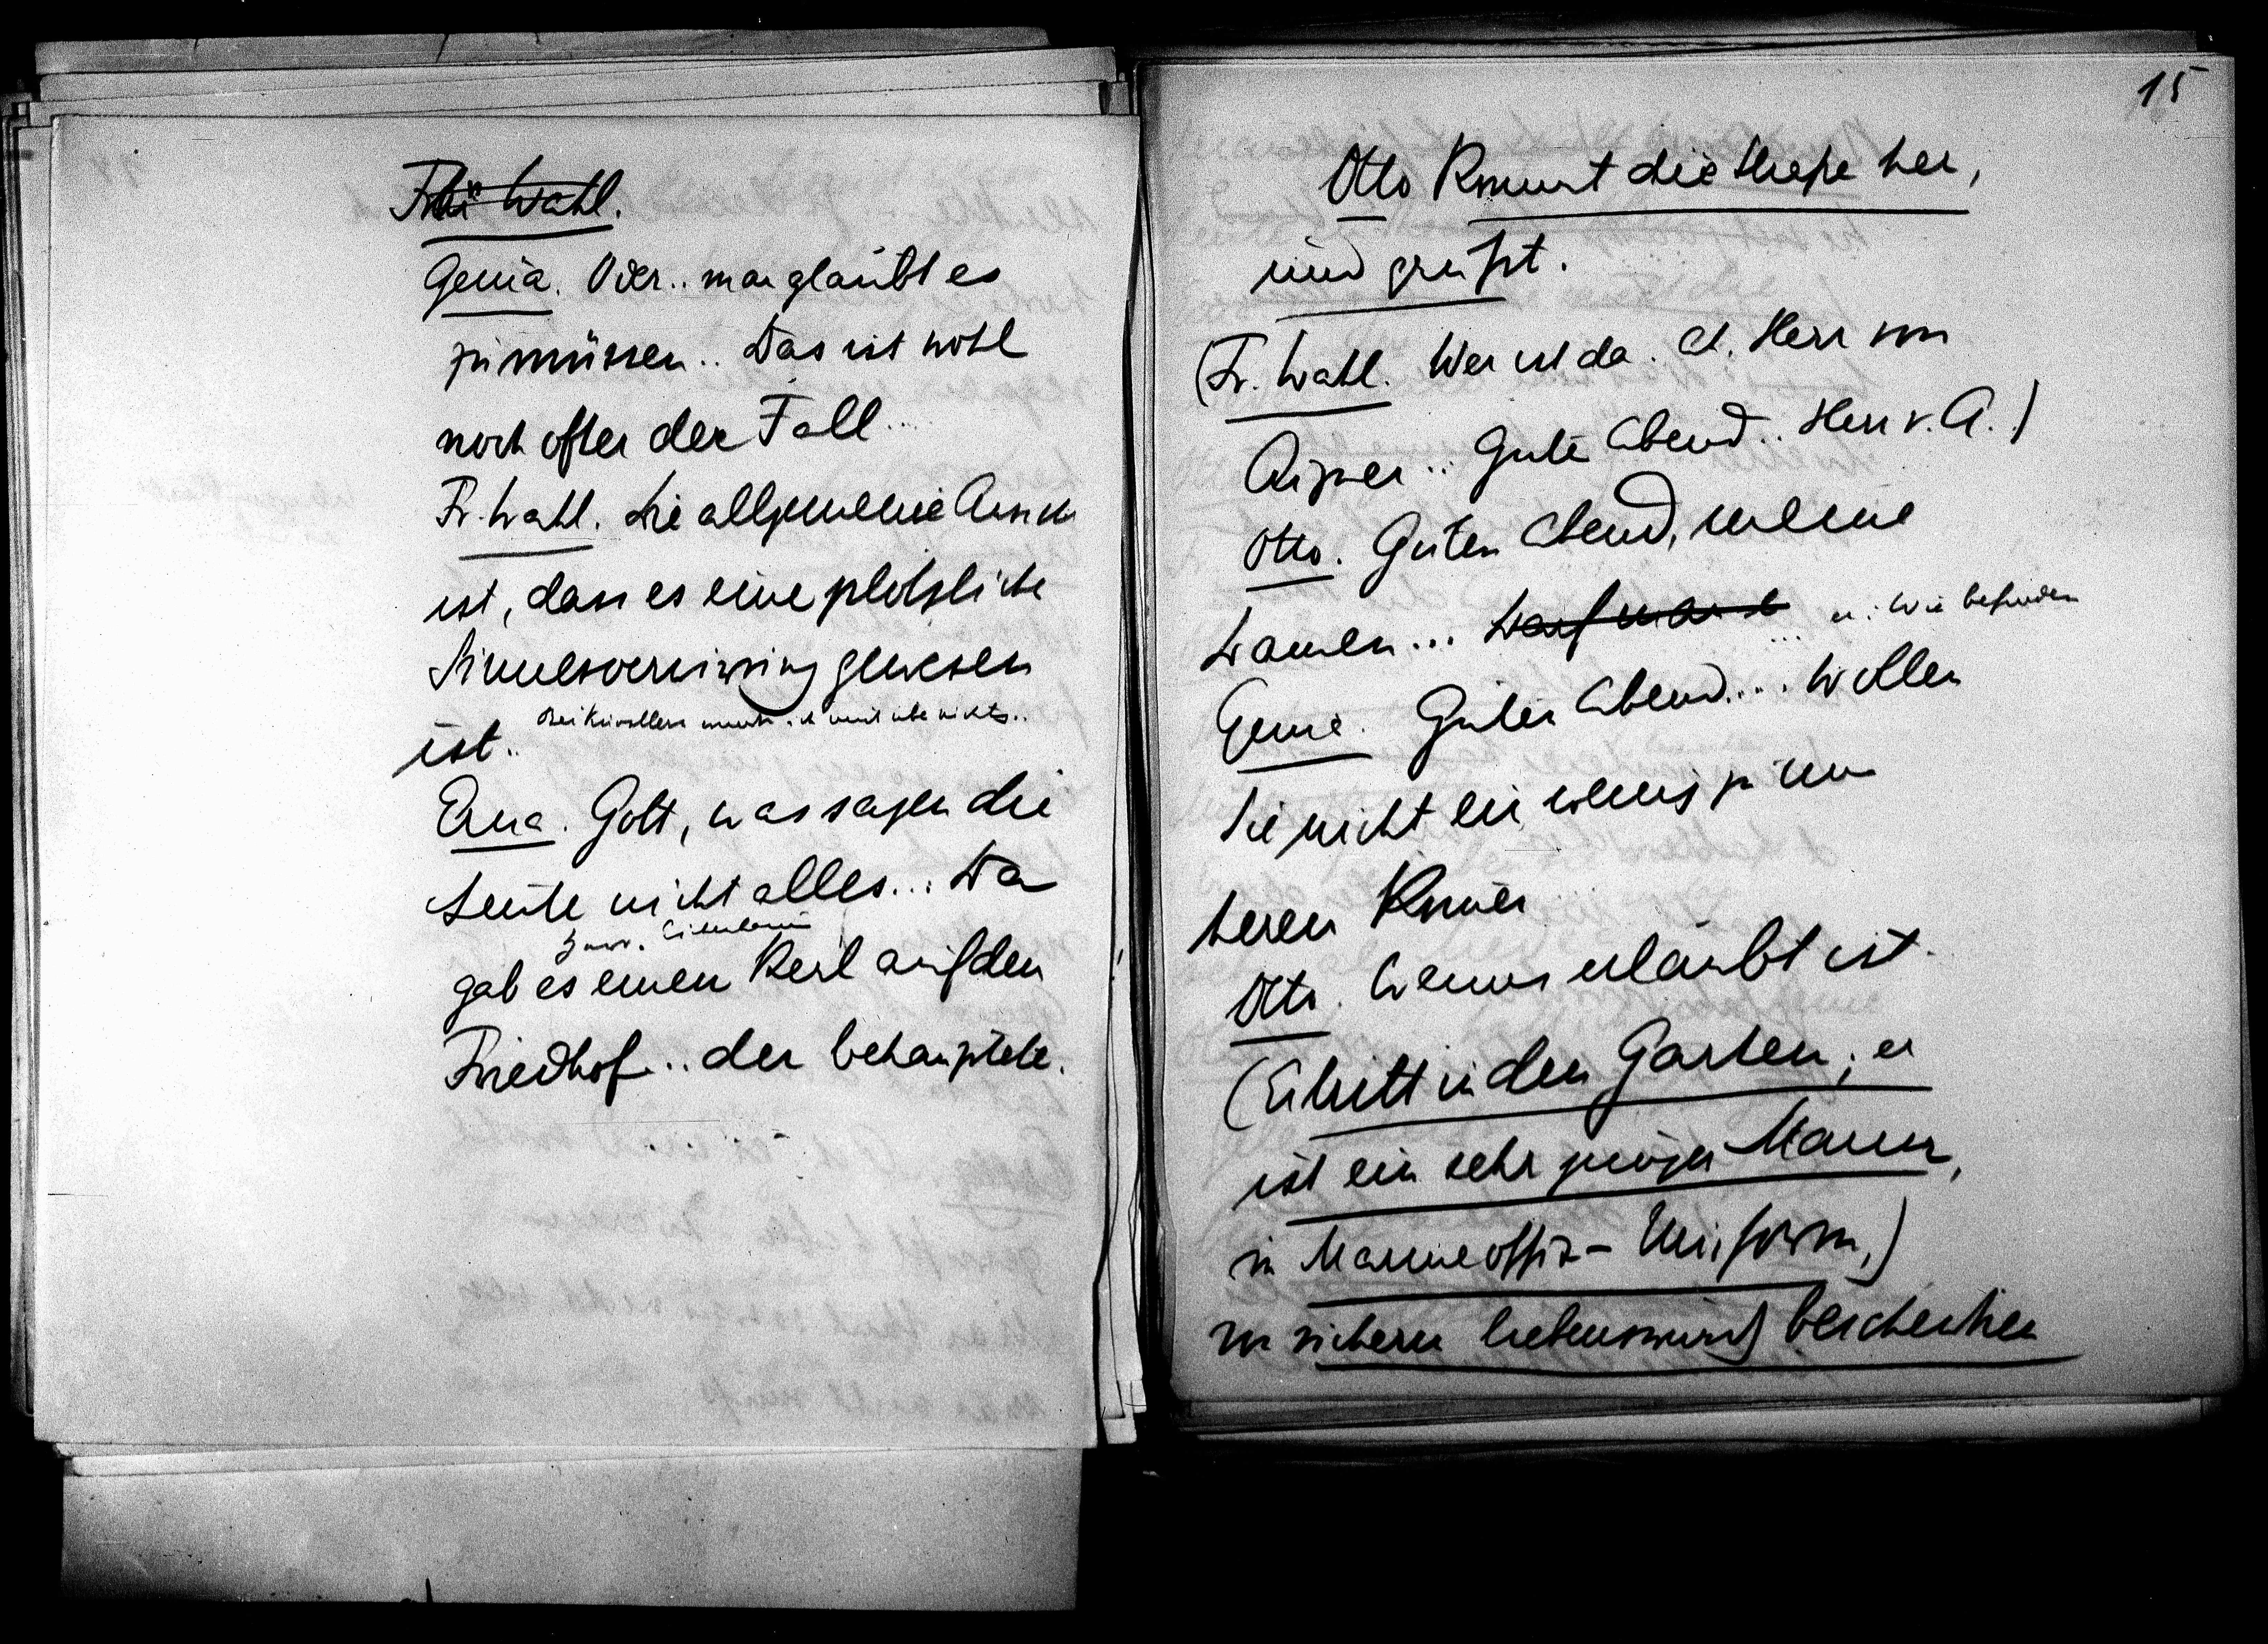 Frau Wahl.
Genia. Oder.. man glaubt es
zu müssen.. Das ist wohl
noch öfter der Fall..
Fr. Wahl. Die allgemeine Ansich
ist, dass es eine plötzliche
Sinnesverwirrung gewesen
Bei Künstlern wundert mich nichts..
ist..
Erna. Gott, was sagen die
Leute nicht alles... Da
gab es einen Kerl auf dem
Friedhof... der behauptete.
15
Otto kommt die Straße her,
und grüßt.
(Fr. Wahl. Wer ist da. Ah, Herr von
Aigner.. Guten Abend.. Herr v. A.)
Otto. Guten Abend, meine
Damen...
u. Wie befinden
Genia. Guten Abend... Wollen
Sie nicht ein wenig zu uns
herein kommen
Otto. Wenns erlaubt ist.
(Er tritt in den Garten; er
ist ein sehr junger Mann,
in Marineoffiz- Uniform,)
von sicherm liebenswürdig bescheidnen